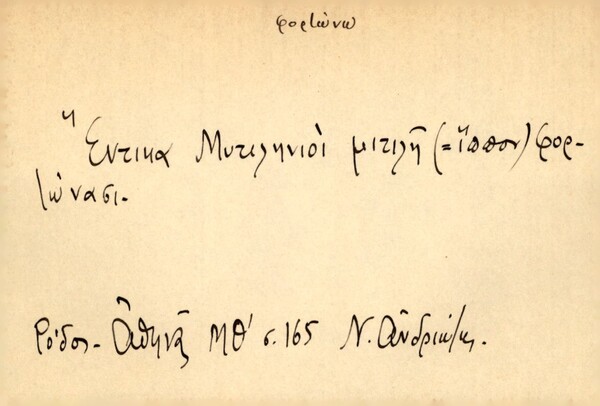 φορτώνω
"Έντικα Μυτιληνιοὶ μιτιλῆ (=ἵππον) φορ-
τώνασι.
Ρόδος - Ἀθηνᾶ ΜΘ' σ. 165 Ν. Ἀνδριώτης.